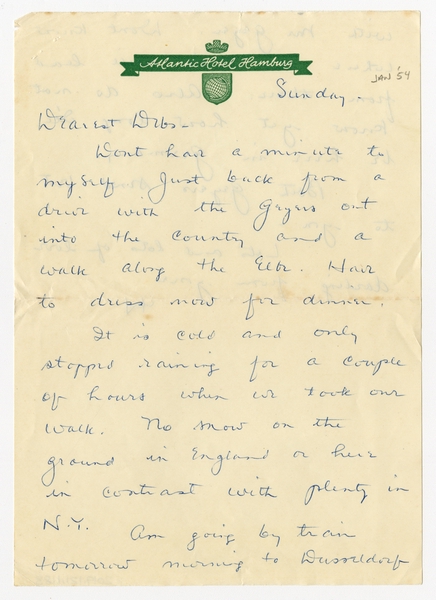 Atlantic Hotel Hamburg
JAN '54
Sunday.
Dearest Debs-
Dont have a minute to
myself. Just back from a
drive with the Geyers out
into the country and a
walk along the Elbe. Have
to dress now for dinner.
It is cold and only
stopped raining for a couple
of hours when we took our
walk. No snow on the
ground in England or here
in contrast with plenty in
N.Y. Am going by train
tomorrow morning to Dusseldorf